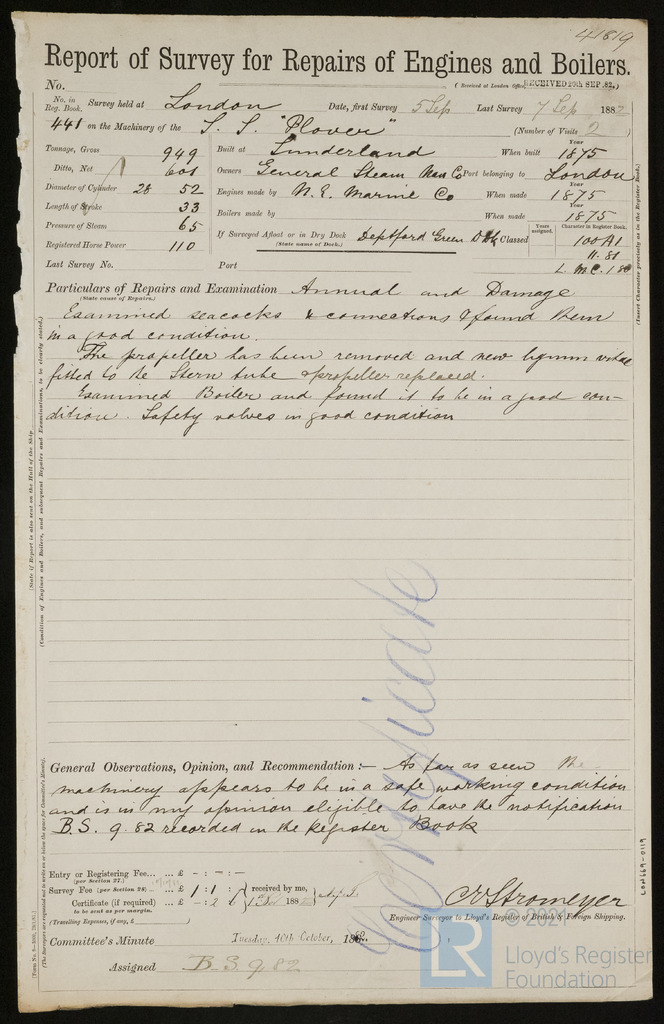 41819
Report of Survey for Repairs of Engines and Boilers.
No.
(Received at London Office, RECEIVED 20th SEP. 82.)
No. in Reg. Book. Survey held at London Date, first Survey 5 Sep Last Survey 7 Sep 1882
441 on the Machinery of the S. S. "Plover" (Number of Visits 2)
Tonnage, Gross 949 Built at Sunderland When built Year 1875
Ditto, Net 601 Owners General Steam Nav Co Port belonging to London
Diameter of Cylinder 28 52 Engines made by N. E. Marine Co When made Year 1875
Length of Stroke 33 Boilers made by When made Year 1875
Pressure of Steam 65 If Surveyed Afloat or in Dry Dock Deptford Green D Dk Classed Years assigned. Character in Register Book. 100A1
Registered Horse Power 110 (State name of Dock.) 11.81
Last Survey No. Port L.M.C. 1
Particulars of Repairs and Examination Annual and Damage
(State cause of Repairs.)
Examined seacocks & connections & found them
in a good condition.
The propeller has been removed and new lignum vitae
fitted to the Stern tube & propeller replaced.
Examined Boiler and found it to be in a good con-
dition. Safety valves in good condition
(State if Report is also sent on the Hull of the Ship.
(Condition of Engines and Boilers, and subsequent Repairs and Examinations, to be clearly stated.)
(Insert Character precisely as in the Register Book.)
Certificate
General Observations, Opinion, and Recommendation:— As far as seen the
machinery appears to be in a safe working condition
and is in my opinion eligible to have the notification
B.S. 9.82 recorded in the Register Book
Entry or Registering Fee... ... £ - : - : -
(per Section 27.)
Survey Fee (per Section 28)— ... £ 1 : 1 : received by me,
Certificate (if required) ... £ - : 2 6 188
to be sent as per margin.
(Travelling Expenses, if any, £ )
C E Stromeyer
Engineer Surveyor to Lloyd's Register of British & Foreign Shipping.
Committee's Minute Tuesday, 10th October, 1882.
Assigned B.S. 9.82
LON669-0119
© 2021
LR
Lloyd's Register
Foundation